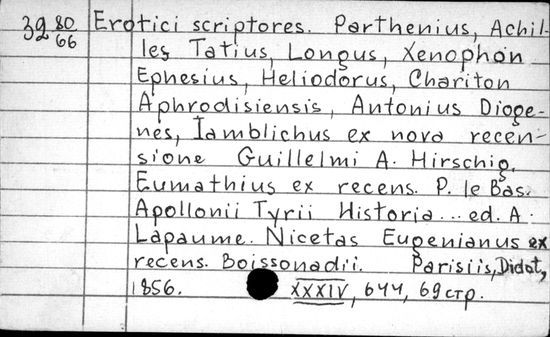 39 80/66 Erotici scriptores. Parthenius, Achil-
les Tatius, Longus, Xenophon
Ephesius, Heliodorus, Chariton
Aphrodisiensis, Antonius Dioge-
nes, Iamblichus ex nova recen-
sione Guillelmi A. Hirschig.
Eumathius ex recens. P. le Bas.
Apollonii Tyrii Historia... ed. A.
Lapaume. Nicetas Eugenianus ex
recens. Boissonadii. Parisiis, Didot,
1856. XXXIV, 644, 69 стр.